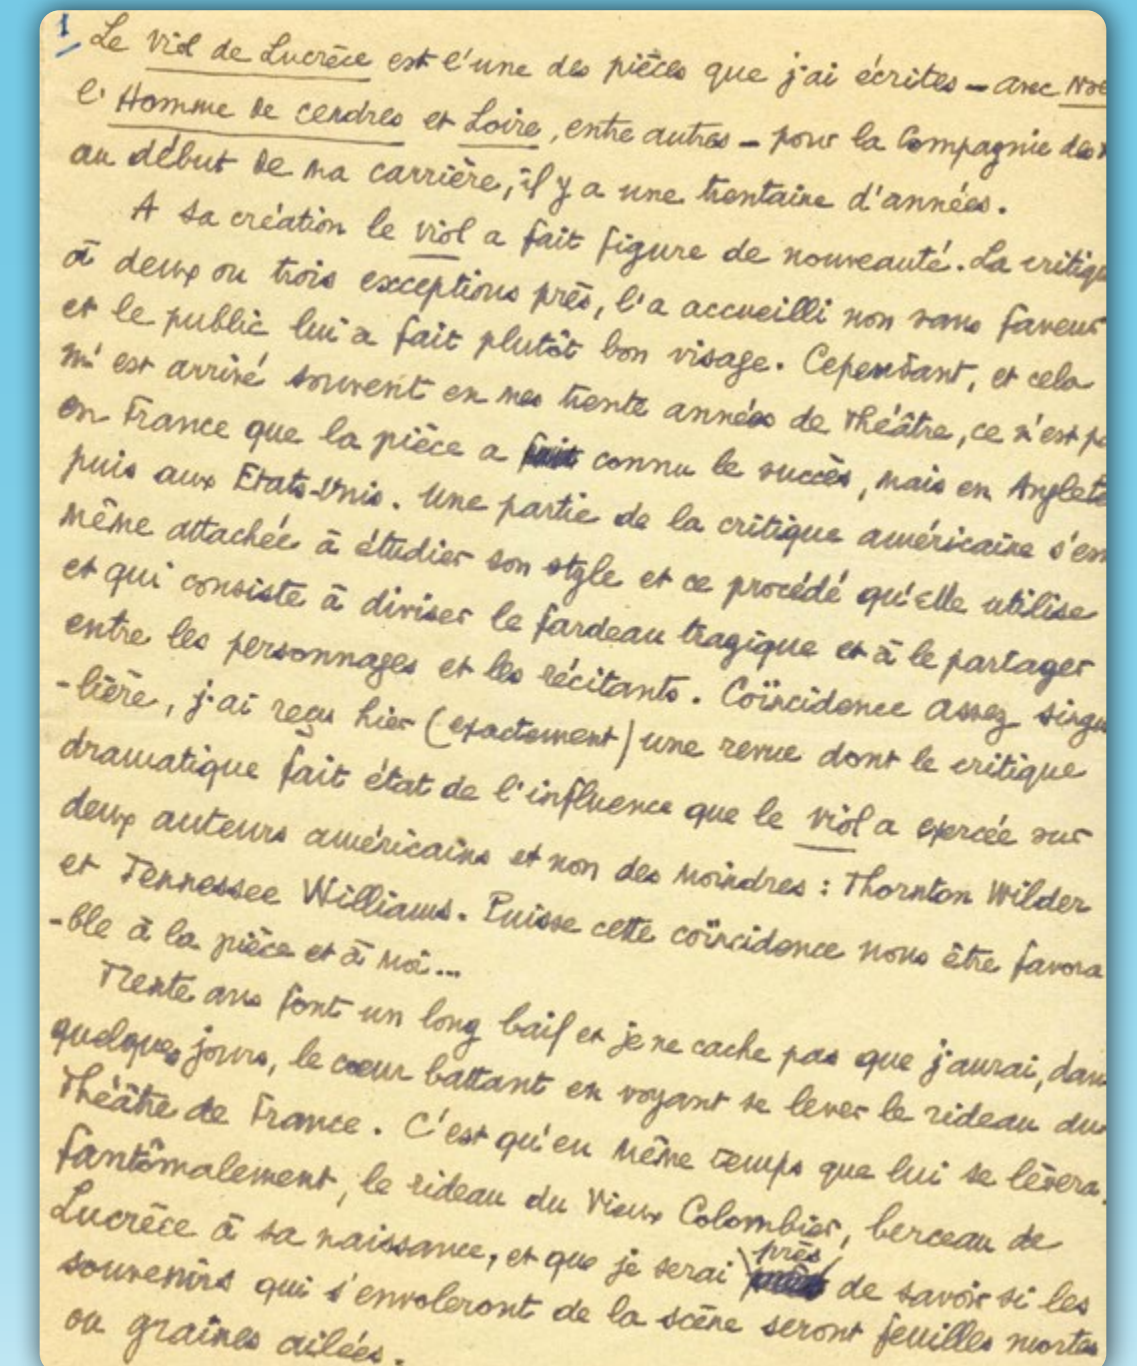 1
Le Viol de Lucrèce est l'une des pièces que j'ai écrites – avec
l'Homme de cendres et Loire, entre autres – pour la Compagnie des
au début de ma carrière, il y a une trentaine d'années.
A sa création le viol a fait figure de nouveauté. La critiqu
à deux ou trois exceptions près, l'a accueilli non sans faveur
et le public lui a fait plutôt bon visage. Cependant, et cela
m'est arrivé souvent en mes trente années de Théâtre, ce n'est p
en France que la pièce a connu le succès, mais en Anglete
puis aux Etats-Unis. Une partie de la critique américaine s'es
même attachée à étudier son style et ce procédé qu'elle utilise
et qui consiste à diviser le fardeau tragique et à le partager
entre les personnages et les récitants. Coïncidence assez singu
-lière, j'ai reçu hier (exactement) une revue dont le critique
dramatique fait état de l'influence que le viol a exercée sur
deux auteurs américains et non des moindres : Thornton Wilder
et Tennessee Williams. Puisse cette coïncidence nous être favora
-ble à la pièce et à moi...
Trente ans font un long bail et je ne cache pas que j'aurai, dan
quelques jours, le cœur battant en voyant se lever le rideau du
Théâtre de France. C'est qu'en même temps que lui se lèvera,
fantômalement, le rideau du Vieux Colombier, berceau de
Lucrèce à sa naissance, et que je serai près de savoir si les
souvenirs qui s'envoleront de la scène seront feuilles mortes
ou graines ailées.